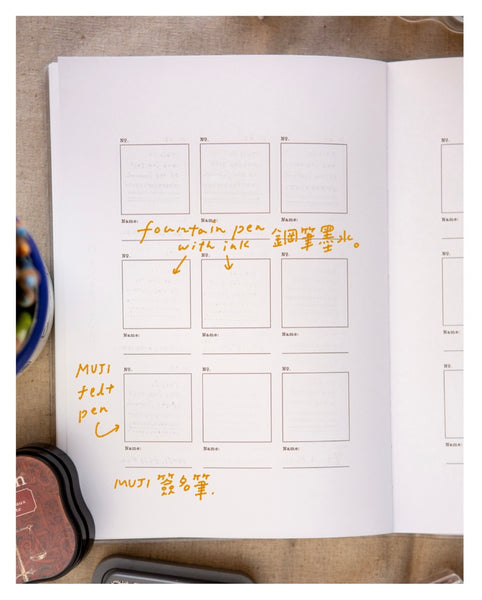 No. No. No.
Name: Name: Name:
fountain pen
with ink 鋼筆墨水。
No. No. No.
Name: Name: Name:
No. No. No.
MUJI
felt
pen
Name: Name: Name:
MUJI 簽名筆.
No.
Name:
No.
Name:
No.
Name: